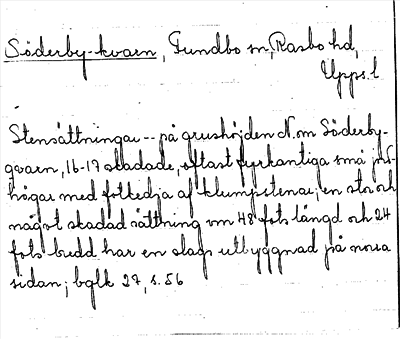 Söderby-kvarn, Gundbo sn, Rasbo hd,
Upps. l
Stensättningar -- på grushöjden N. om Söderby-
qvarn, 16-17 skadade, oftast fyrkantiga små jord-
högar med fotkedja af klumpstenar; en stor och
något skadad sättning om 48 fots längd och 24
fots bredd har en slags utbyggnad på norra
sidan; bglk 27, s. 56